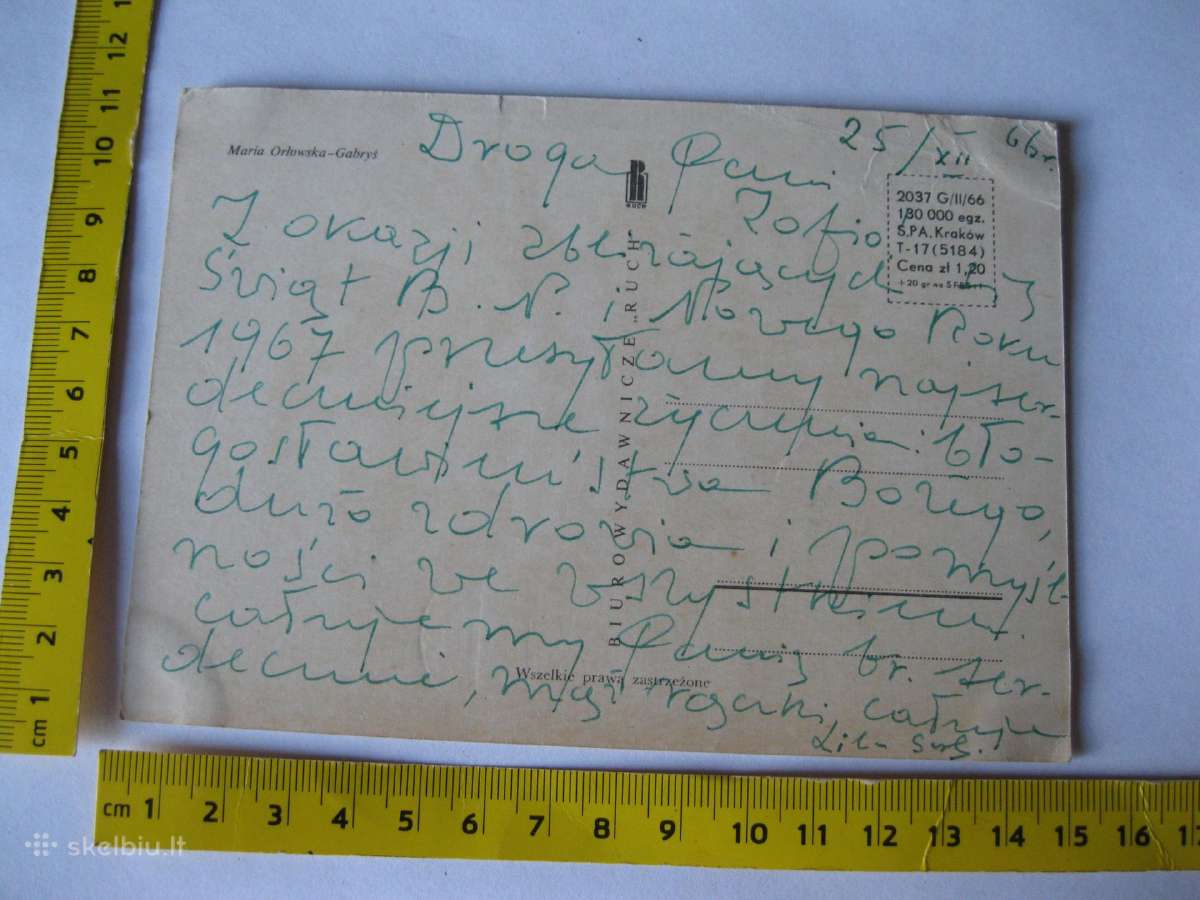 Maria Orłowska-Gabryś
25/XII 66r.
Droga Pani
Zofio!
RUCH
2037 G/II/66
130 000 egz.
S.P.A. Kraków
T-17 (5184)
Cena zł 1,20
+20 gr na SFBS
Z okazji zbliżających się
Świąt B. N. i Nowego Roku
1967 przesyłamy najser-
deczniejsze życzenia: bło-
gosławieństwa Bożego,
dużo zdrowia i pomyśl-
ności we wszystkiem.
całujemy Panią br. ser-
decznie, mąż rączki, całuje
BIURO WYDAWNICZE „RUCH"
Wszelkie prawa zastrzeżone
cm 1 2 3 4 5 6 7 8 9 10 11 12
cm 1 2 3 4 5 6 7 8 9 10 11 12 13 14 15 16
skelbiu.lt